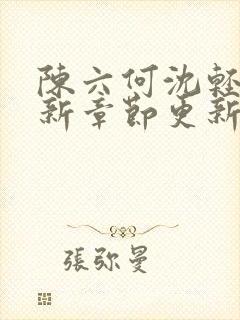 陳六何沈輕
新章節更新
張弥曼